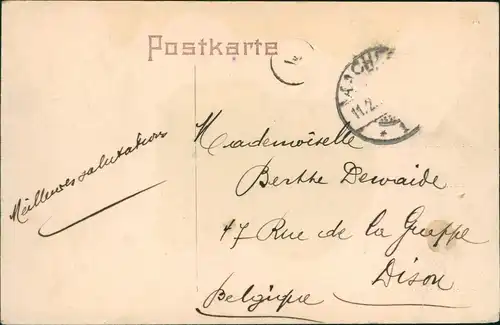 Postkarte
AACHE
11.2.
* 1
Meilleures salutations
Mademoiselle
Berthe Dewaide
47 Rue de la Grappe
Dison
Belgique